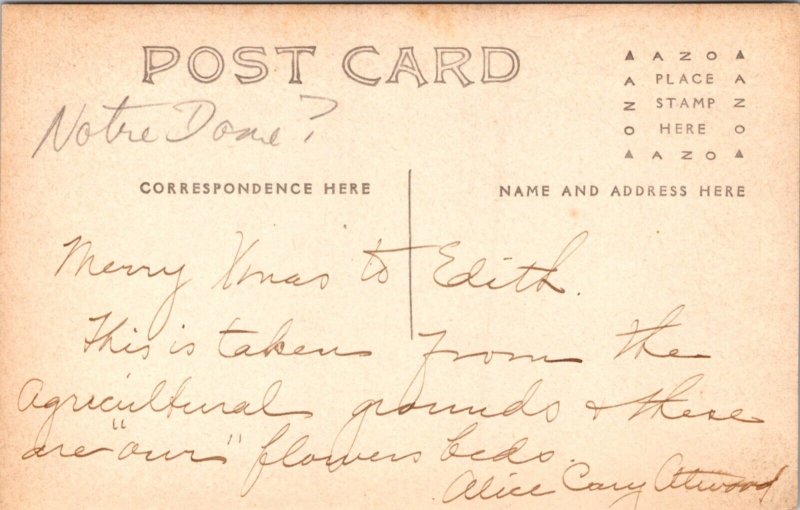 POST CARD
Notre Dame?
▲ A Z O ▲
A PLACE A
Z STAMP Z
O HERE O
▲ A Z O ▲
CORRESPONDENCE HERE
NAME AND ADDRESS HERE
Merry Xmas to Edith.
This is taken from the
Agricultural grounds & these
are "our" flowers beds.
Alice Cary Atwood